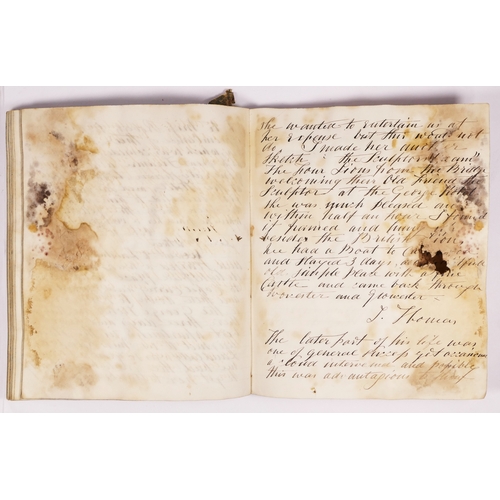 She wanted to entertain us at
her expense but this would not
do. I made her quick
Sketch: the Sculptors
The four Lions from the Bridge
welcoming their Old friend the
Sculptor at the George Hotel
she was much pleased and
within half an hour I found
it framed and hung
beside the British Lion
we had a Boat to
and stayed 3 days,
old simple place with a fine
Castle and came back through
Worcester and Gloucester
J. Thomas
The later part of his life was
one of general success yet occasional
a cloud intervened and possibly
this was advantageous to him